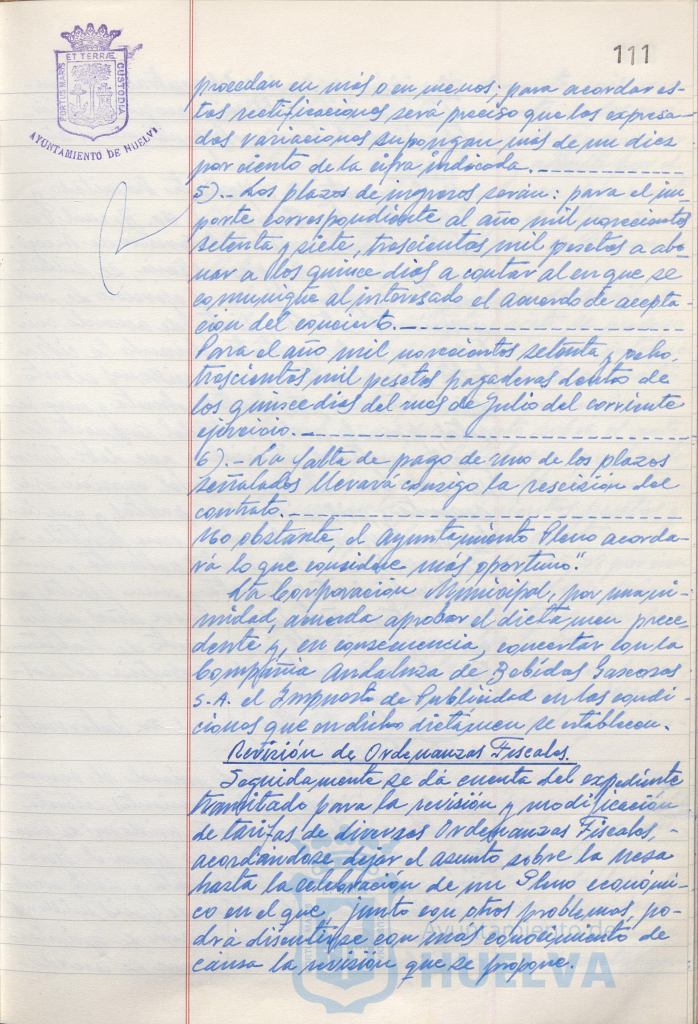 111
PORTUS MARIS ET TERRÆ CUSTODIA
AYUNTAMIENTO DE HUELVA
procedan en más o en menos; para acordar es-
tas rectificaciones será preciso que las expresa-
das variaciones supongan más de un diez
por ciento de la cifra indicada.
5).- Los plazos de ingresos serán: para el im-
porte correspondiente al año mil novecientos
setenta y siete, trescientas mil pesetas a abo-
nar a los quince días a contar al en que se
comunique al interesado el acuerdo de acepta-
ción del concierto.
Para el año mil novecientos setenta y ocho,
trescientas mil pesetas pagaderas dentro de
los quince días del mes de Julio del corriente
ejercicio.
6).- La falta de pago de uno de los plazos
señalados llevará consigo la rescisión del
contrato.
No obstante, el Ayuntamiento Pleno acorda-
rá lo que considere más oportuno".
La Corporación Municipal, por una-
nimidad, acuerda aprobar el dictamen prece-
dente y, en consecuencia, concertar con la
Compañia Andaluza de Bebidas Gaseosas
S.A. el Impuesto de Publicidad en las condi-
ciones que en dicho dictámen se establecen.
Revisión de Ordenanzas Fiscales.
Seguidamente se dá cuenta del expediente
tramitado para la revisión y modificación
de tarifas de diversas Ordenanzas Fiscales,
acordándose dejar el asunto sobre la mesa
hasta la celebración de un Pleno económi-
co en el que, junto con otros problemas, po-
drá discutirse con más conocimiento de
causa la revisión que se propone.
Ayuntamiento de
HUELVA